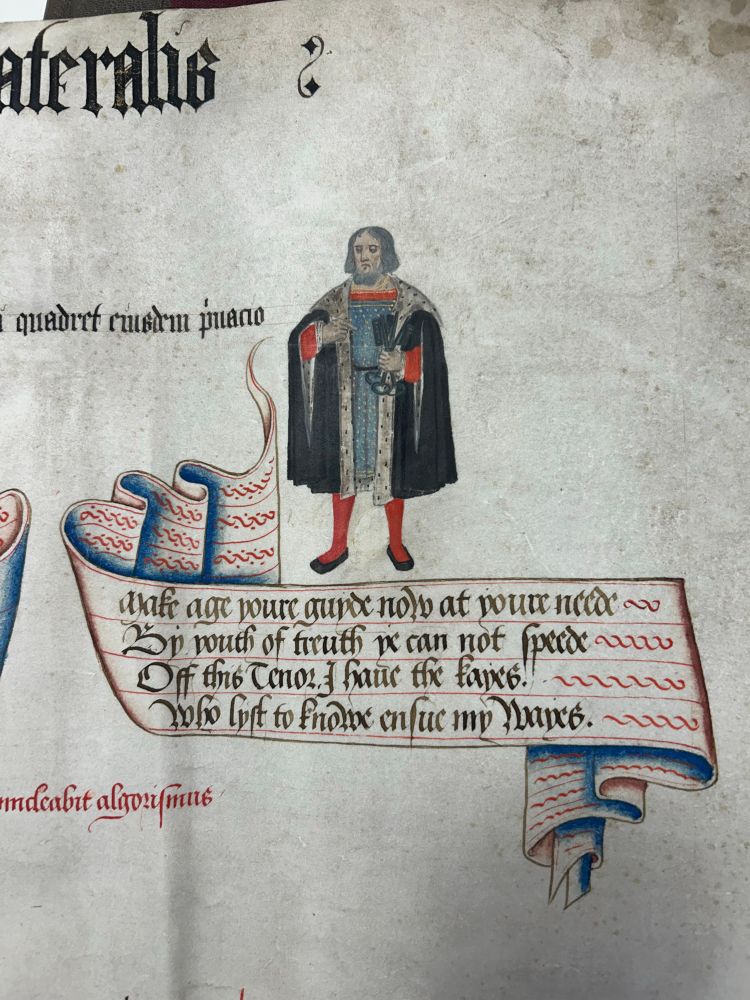 ateralis
quadret eiusdem
Make age youre guyde now at youre neede
By youth of treuth ye can not speede
Off this Tenor. I haue the kayes.
Who lyst to knowe ensue my Wayes.
algorismus